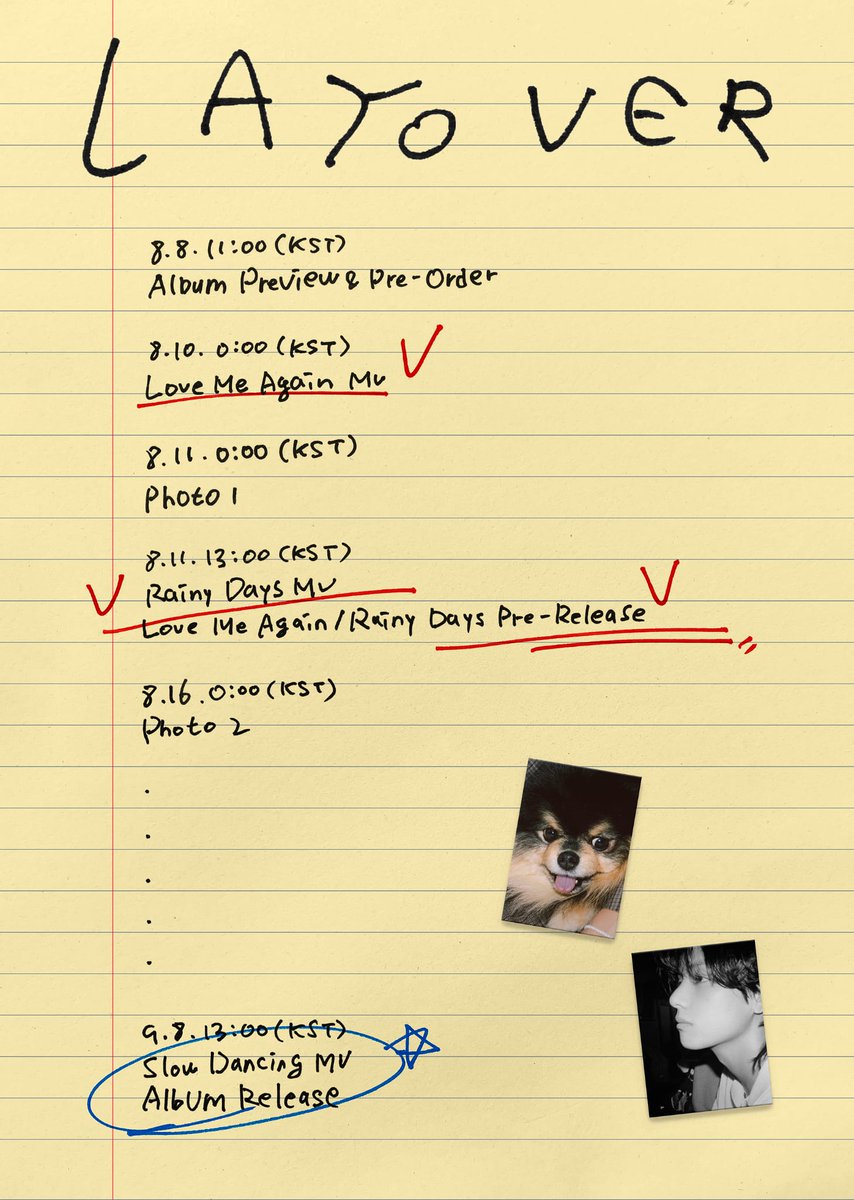 LAYOVER
8.8.11:00(KST)
Album Preview & Pre-Order
8.10. 0:00 (KST)
Love Me Again MV
8.11.0:00 (KST)
Photo 1
8.11.13:00(KST)
Rainy Days MV
Love Me Again/Rainy Days Pre-Release
8.16.0:00(KST)
Photo 2
.
.
.
.
.
9.8.13:00(KST)
Slow Dancing MV
Album Release